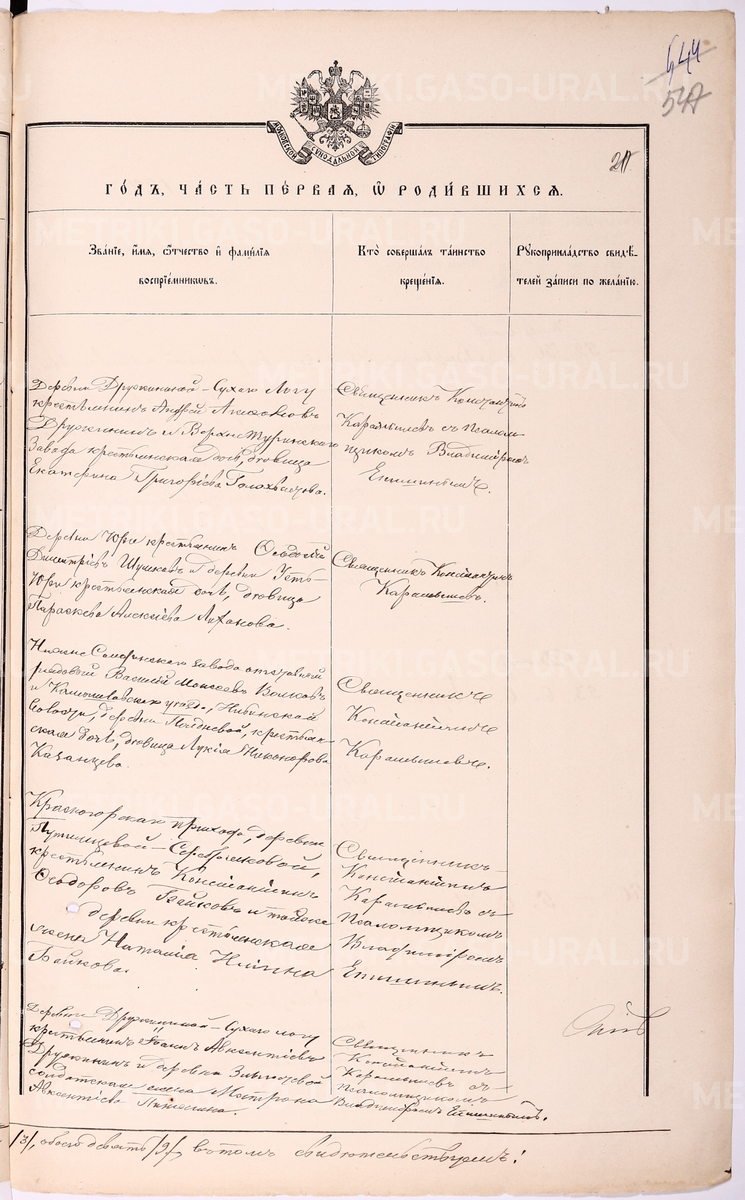 544
547
МОСКОВСКОЙ СѴНОДАЛЬНОЙ ТИПОГРАФІИ
21
ГОДЪ, ЧАСТЬ ПЕРВАЯ, Ѿ РОДИВШИХСЯ.
Званіе, имя, отчество и фамилія
воспріемниковъ.
Кто совершалъ таинство
крещенія.
Рукоприкладство свидѣ-
телей записи по желанію.
Деревни Дружининой-Сухаго Логу
крестьянинъ Андрей
Дружининъ и Верхнетуринскаго
Завода крестьянская дочь, девица
Екатерина Григорьева
Священникъ Константинъ
Карамышевъ съ псалом-
щикомъ Владиміромъ
Епишинымъ.
Деревни Юрмы крестьянинъ Ѳеодотъ
Димитріевъ и деревни Усть-
Юрмы крестьянская дочь, девица
Параскева Алексіева
Священникъ Константинъ
Карамышевъ.
завода отставной
рядовой Василій Моисеевъ Волковъ
и Камышловскаго уезда,
волости, деревни крестьян-
ская дочь, девица Лукія Никонорова
Казанцева.
Священникъ
Константинъ
Карамышевъ.
Красногорскаго прихода, деревни
Путилицевой-
крестьянинъ Константинъ
Ѳеодоровъ Бѣйковъ и тойже
деревни крестьянская
жена Наталія Ильина
Бѣйкова.
Священникъ
Константинъ
Карамышевъ съ
псаломщикомъ
Владиміромъ
Епишинымъ.
Деревни Дружининой-Сухаго логу
крестьянинъ Іоаннъ Авксентіевъ
Дружининъ и деревни
солдатская жена Матрона
Авксентіева
Священникъ
Константинъ
Карамышевъ съ
псаломщикомъ
Владиміромъ Епишинымъ.
/3/, обоего девять /9/, въ томъ свидѣтельствуемъ:
METRIKI.GASO-URAL.RU